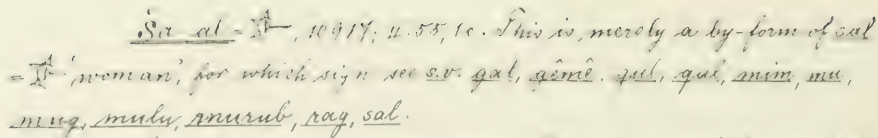 Sa al = , 10917; II. 55, 1c. This is merely a by-form of sal
= 'woman', for which sign see s.v. gal, gêmê, gul, qul, mim, mu,
mug, mulu, murub, rag, sal.